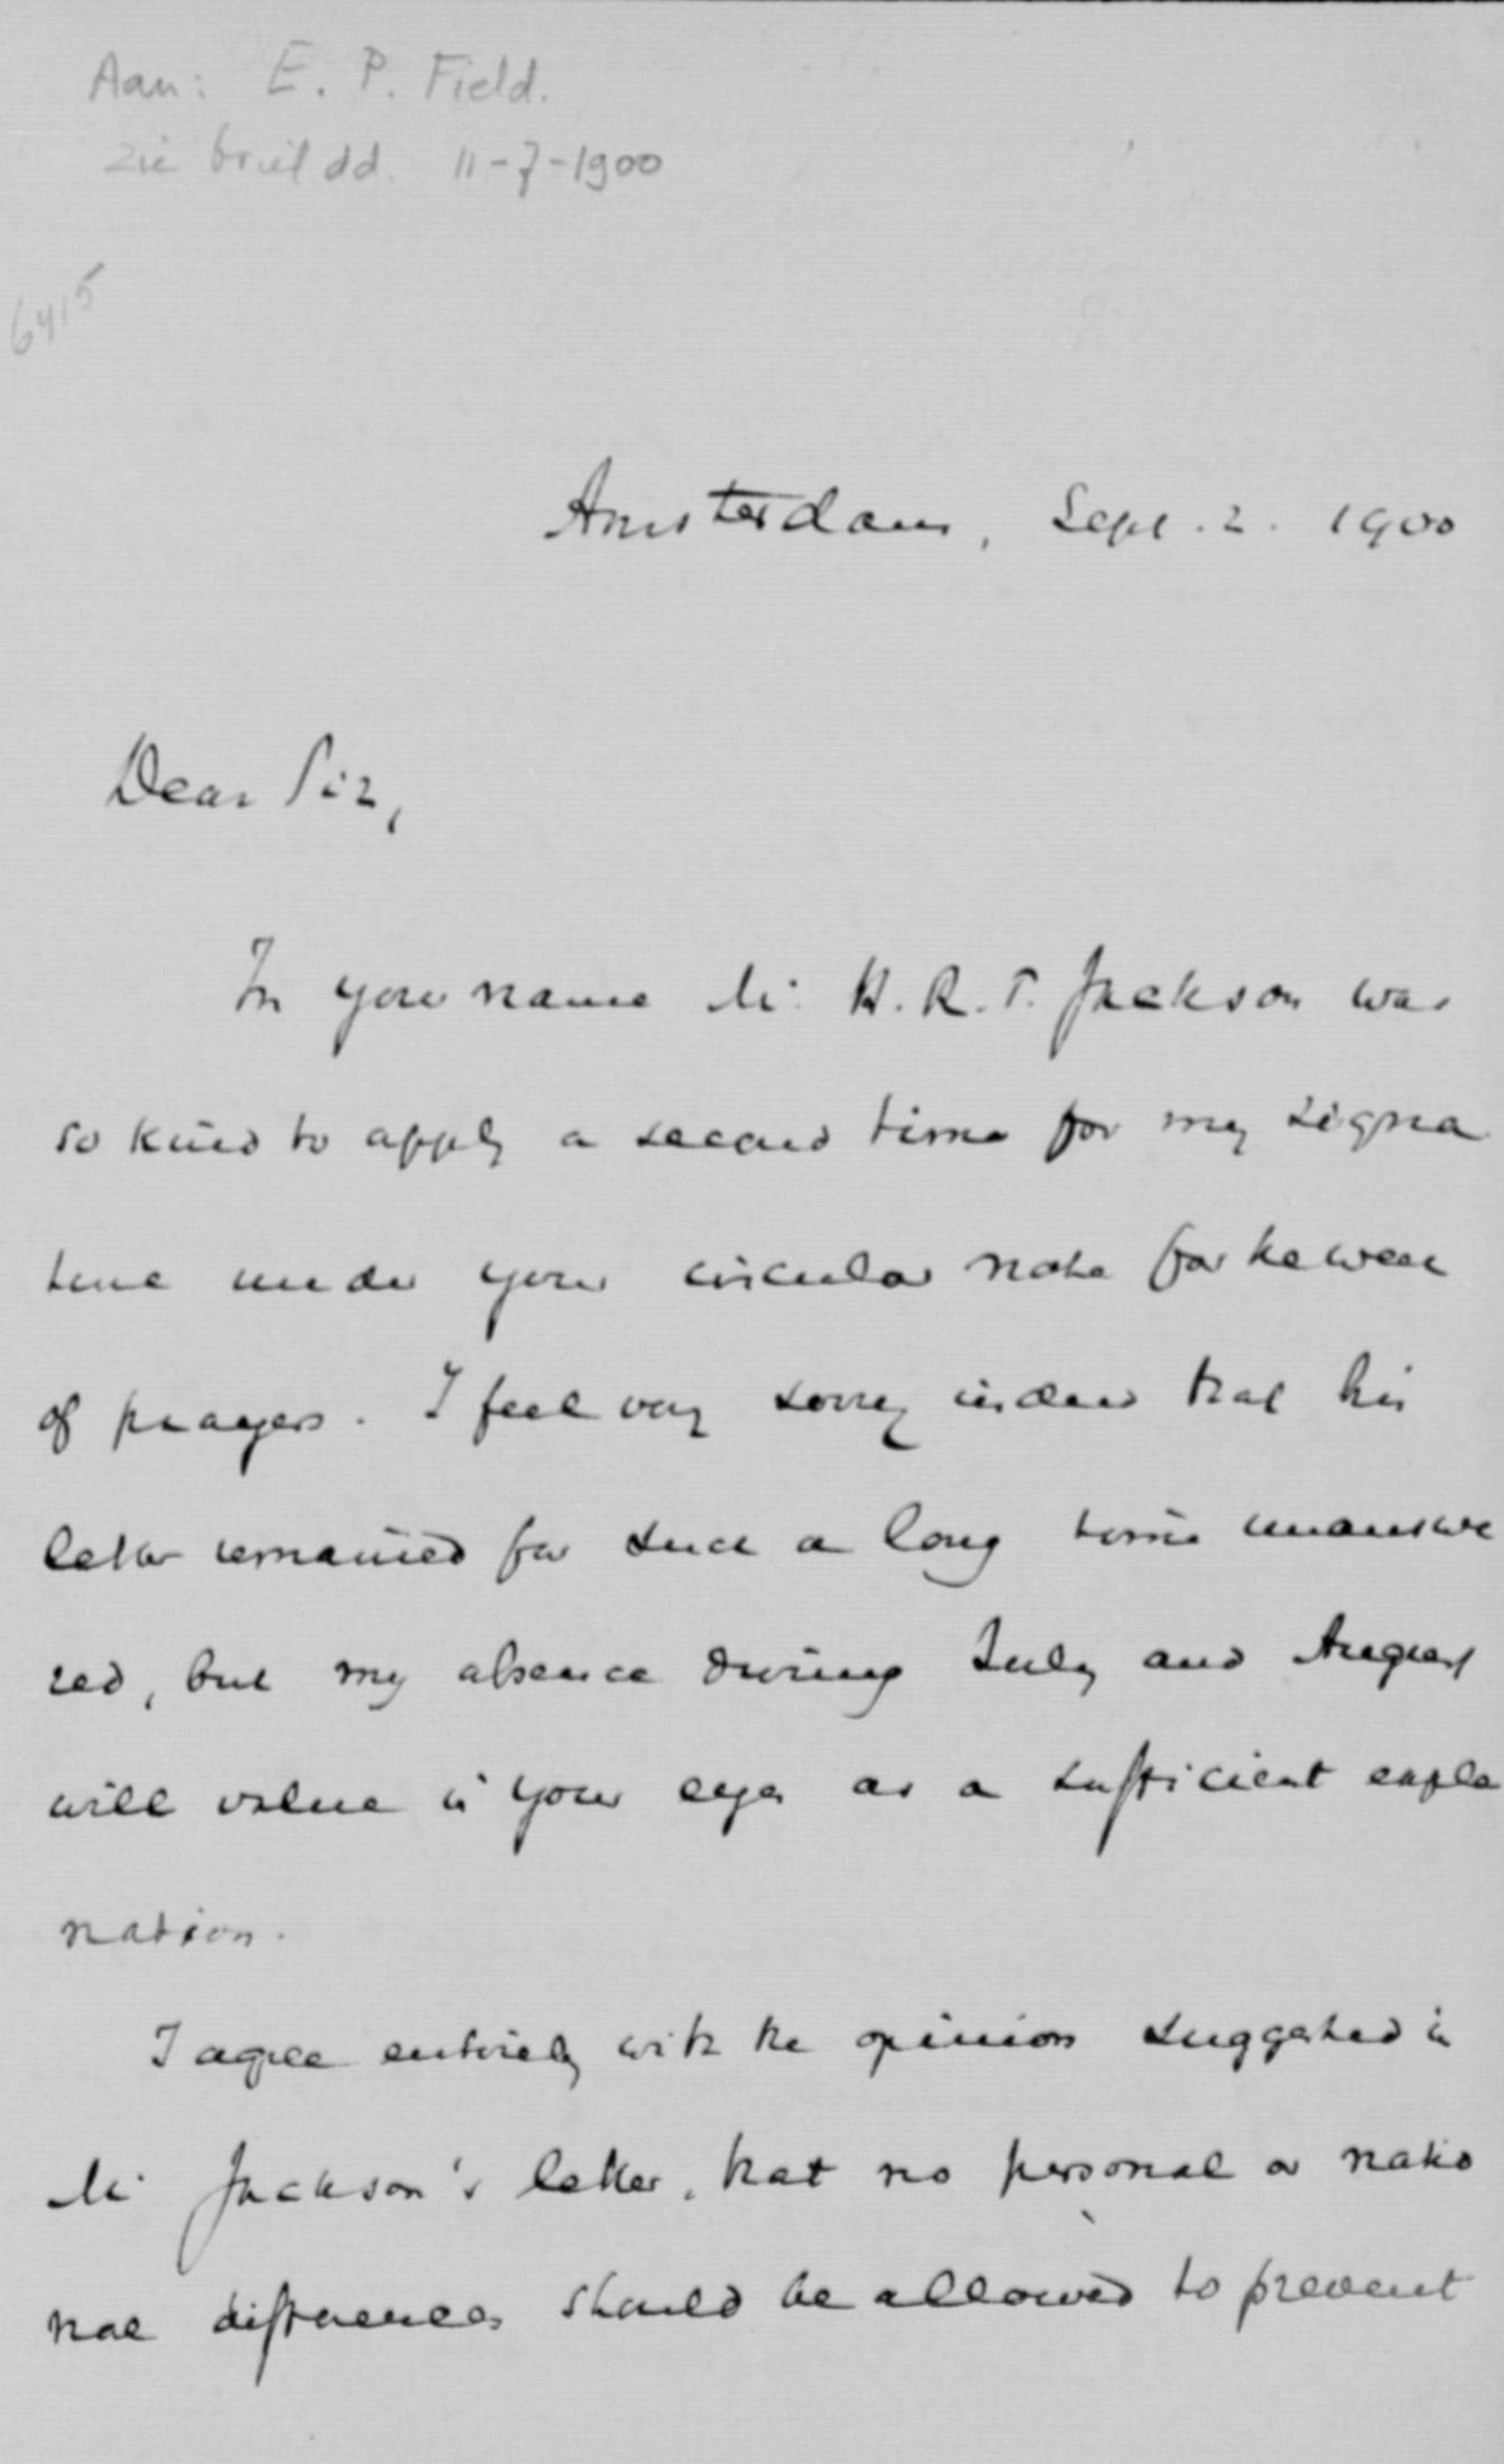 Aan: E. P. Field.
zie brief dd. 11-7-1900
6415
Amsterdam, Sept. 2. 1900
Dear Sir,
In your name Mr. H. R. T. Jackson was
so kind to apply a second time for my signa
ture under your circular note for the week
of prayers. I feel very sorry indeed that his
letter remained for such a long time unanswe
red, but my absence during July and August
will value in your eyes as a sufficient expla
nation.
I agree entirely with the opinion suggested in
Mr Jackson's letter, that no personal or natio
nal differences should be allowed to prevent